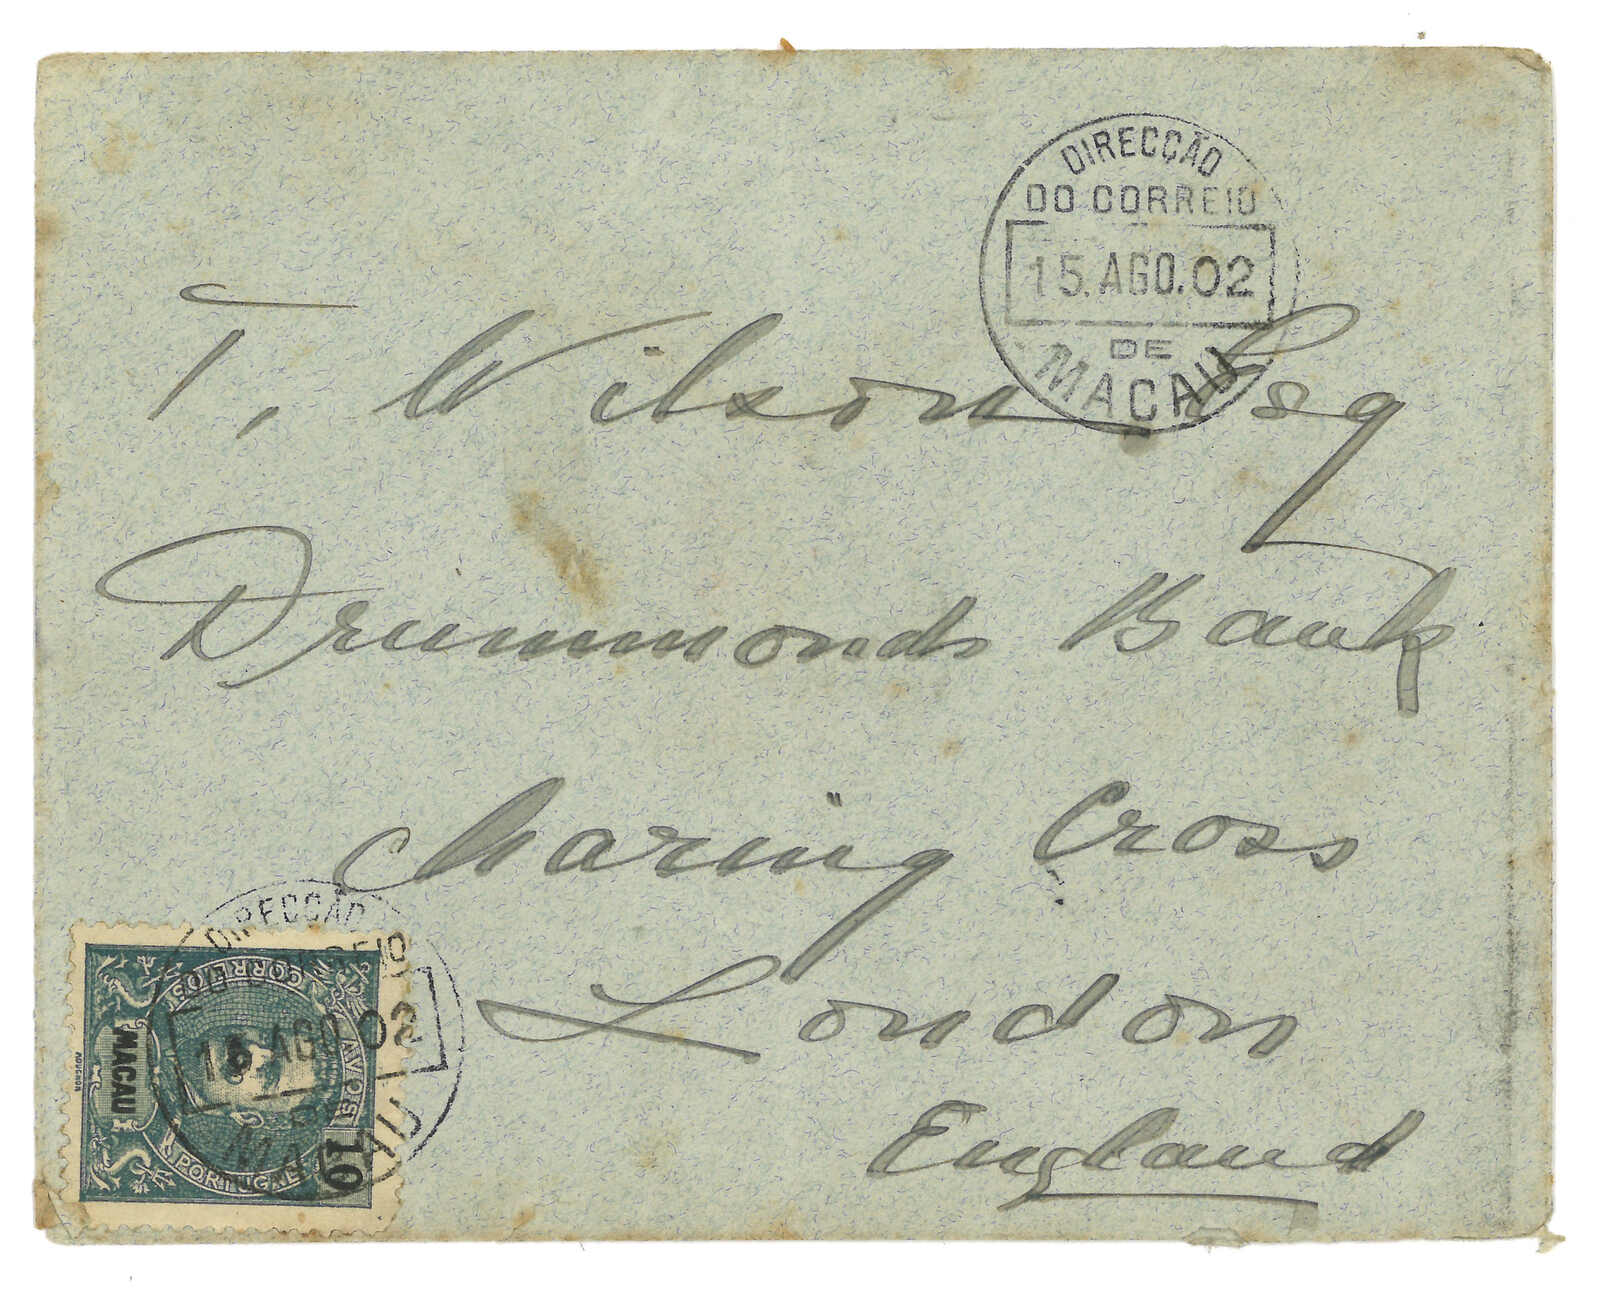 DIRECÇÃO
DO CORREIO
15.AGO.02
DE
MACAU
T. Wilson Esq
Drummonds Bank
Charing Cross
London
England
DIRECÇÃO
DO CORREIO
15 AGO 02
DE
MACAU
CORREIOS
10 AVOS
PORTUGAL
MACAU